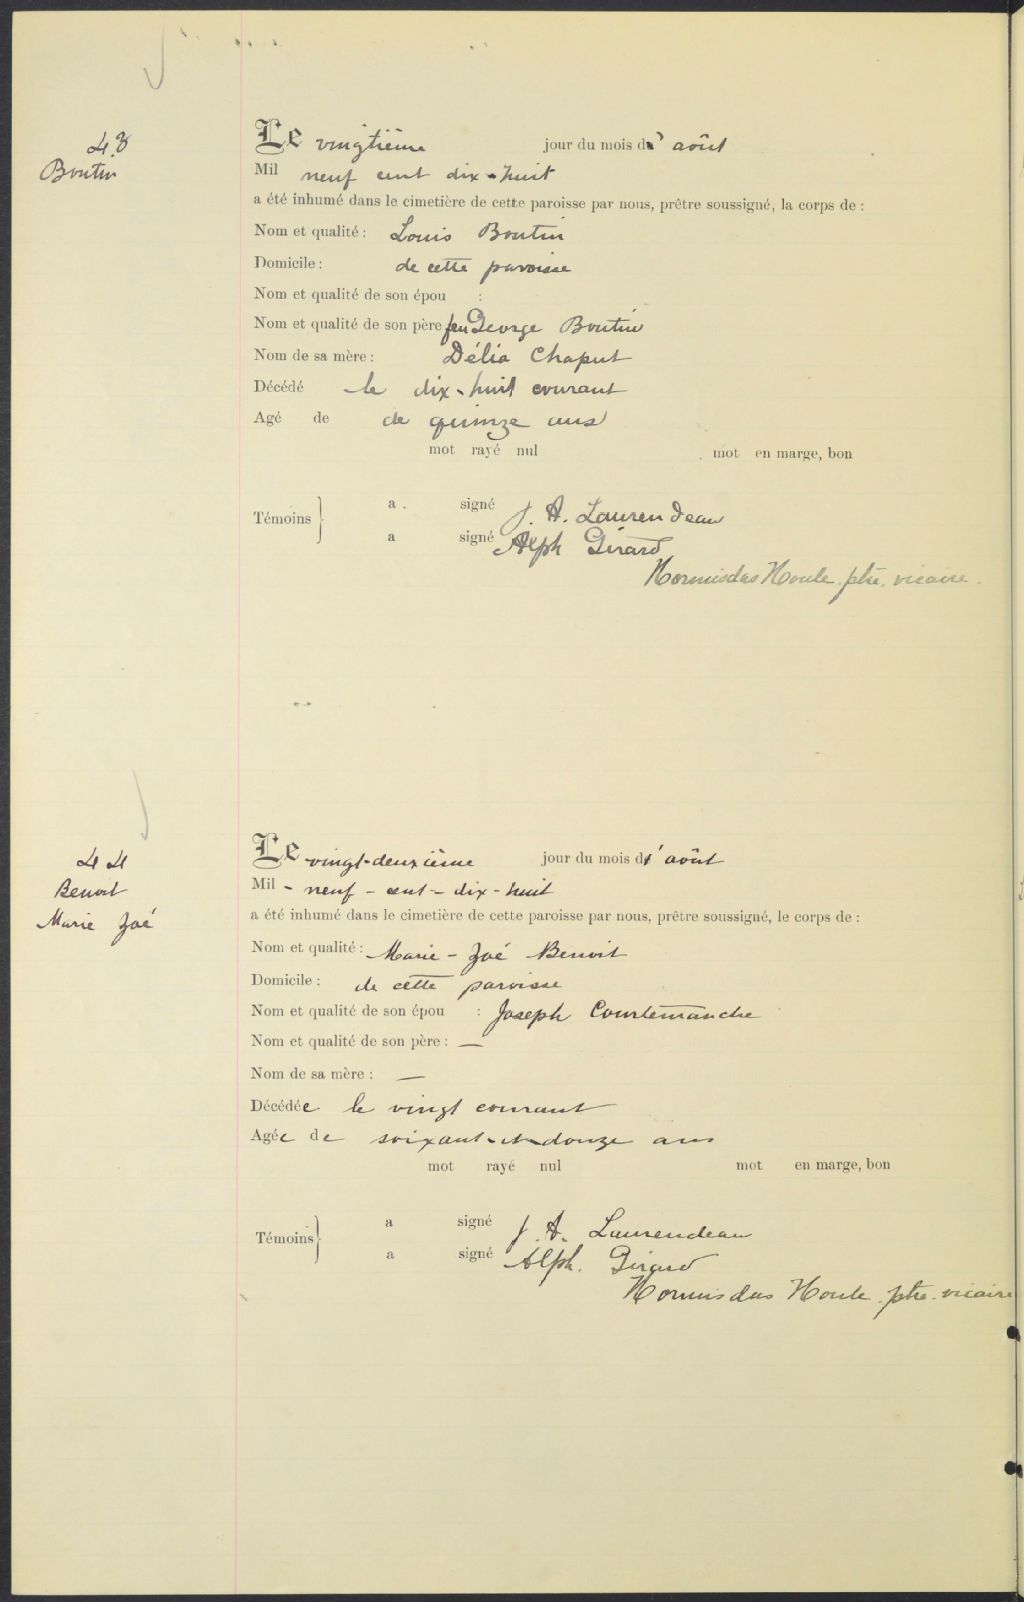 43
Boutin
Le vingtième jour du mois d'août
Mil neuf cent dix-huit
a été inhumé dans le cimetière de cette paroisse par nous, prêtre soussigné, la corps de :
Nom et qualité : Louis Boutin
Domicile : de cette paroisse
Nom et qualité de son épou :
Nom et qualité de son père feu George Boutin
Nom de sa mère : Délia Chaput
Décédé le dix-huit courant
Agé de de quinze ans
mot rayé nul mot en marge, bon
Témoins
a signé J. A. Laurendeau
a signé Alph Girard
Hormisdas Houle ptre. vicaire.
44
Benoit
Marie Zoé
Le vingt-deuxième jour du mois d'août
Mil - neuf - cent - dix - huit
a été inhumé dans le cimetière de cette paroisse par nous, prêtre soussigné, le corps de :
Nom et qualité : Marie - Zoé Benoit
Domicile : de cette paroisse
Nom et qualité de son épou : Joseph Courtemanche
Nom et qualité de son père : —
Nom de sa mère : —
Décédée le vingt courant
Agée de soixant-et-douze ans
mot rayé nul mot en marge, bon
Témoins
a signé J. A. Laurendeau
a signé Alph. Girard
Hormisdas Houle ptre. vicaire